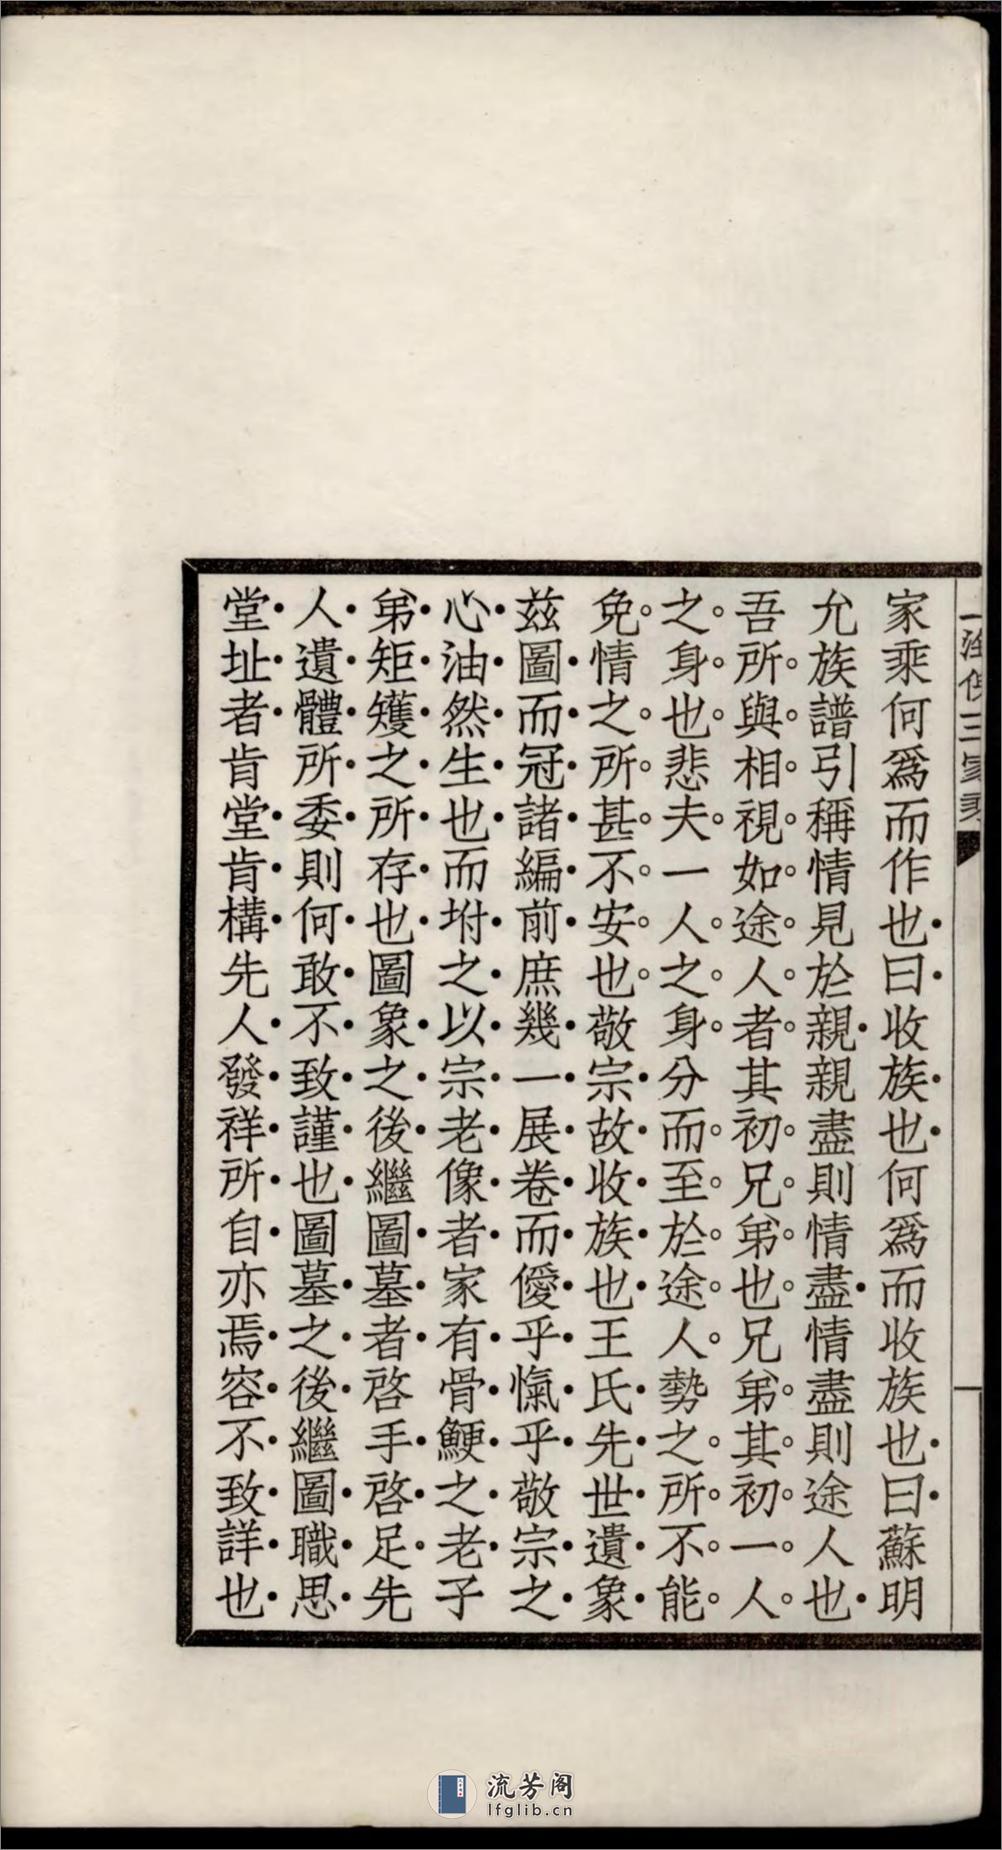 家乘何爲而作也曰收族也何爲而收族也曰蘇明
允族譜引稱情見於親親盡則情盡情盡則途人也
吾所與相視如途人者其初兄弟也兄弟其初一人
之身也悲夫一人之身分而至於途人勢之所不能
免情之所甚不安也敬宗故收族也王氏先世遺象
茲圖而冠諸編前庶幾一展卷而僾乎愾乎敬宗之
心油然生也而坿之以宗老像者家有骨鯁之老子
弟矩矱之所存也圖象之後繼圖墓者啓手啓足先
人遺體所委則何敢不致謹也圖墓之後繼圖職思
堂址者肯堂肯構先人發祥所自亦焉容不致詳也
流芳阁
lfglib.cn